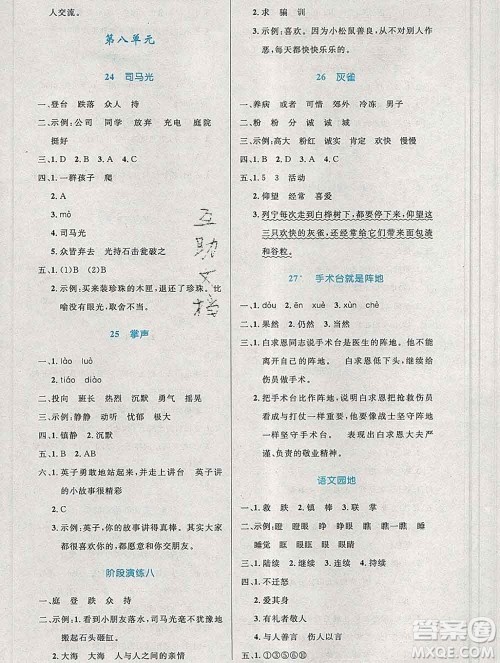 人交流。
第八单元
24 司马光
一、登台 跌落 众人 持
二、示例:公司 同学 放弃 充电 庭院
挺好
三、1.D 2.A 3.A 4.C
四、1.一群孩子 爬
2.A
3.mò
4.司马光
5.众皆弃去 光持石击瓮破之
五、1.(1)B (2)A
2.示例:买来装珍珠的木匣,退还了珍珠。比
喻没有眼光,取舍不当。
25 掌声
一、1.lào luò
2.B
二、投向 班长 热烈 沉默 勇气 摇晃
三、示例:静静 动听 忧郁 微笑
四、1.镇静 2.沉默
五、1.B 2.AB
六、1.英子勇敢地站起来,并走上讲台 英子讲
的小故事很精彩
2.C
3.示例:英子,你的故事讲得真棒。其实大家
都很喜欢你的,愿意和你交朋友。
阶段演练八
一、庭 登 跌 众 持
二、1.示例:看到小朋友落水,司马光毫不犹豫地
搬起石头砸缸。
2.大海 大海与亲人之间的亲情
2.求 骗 训
3.示例:喜欢。因为小松鼠善良,乐于助人,
每天都快快乐乐的。
26 灰雀
一、养病 或者 可惜 郊外 冷冻 男子
二、粉 粉 诚 诚 城
三、示例:高大 粉红 诚实 肯定 欢快 惹人喜爱
四、1.B 2.A 3.A
五、1.5 3 活动
2.仰望 经常 喜爱
3.列宁每次走到白桦树下,都要停下来,仰望这
三只欢快的灰雀,还经常给它们带来面包渣
和谷粒。
27* 手术台就是阵地
一、1.dǒu 2.lián 3.yùn 4.chè
二、1.如果 2.仍然 3.当然
三、1.白求恩同志说手术台是他的阵地,他不能
离开自己的阵地。 白求恩低下头,继续给
伤员做手术。
2.把手术台比作阵地,说明坚守手术台的任
务与打仗一样重要,他要像战士坚守阵地
一样坚守手术台。 表现出白求恩大夫工作
认真负责。
语文园地
一、1.救 跌 2.镇 棒 3.联 掌
二、示例:瞪眼 眨眼 盯着 瞧一瞧 瞧见
睡觉 午睡
三、1.陆续 2.继续 3.持续 4.连续
四、1.不迁怒
2.爱其身
3.有礼者敬人
4.与人善言
五、1.①③⑤⑥⑩
互助文档
答案圈
MXQE.COM